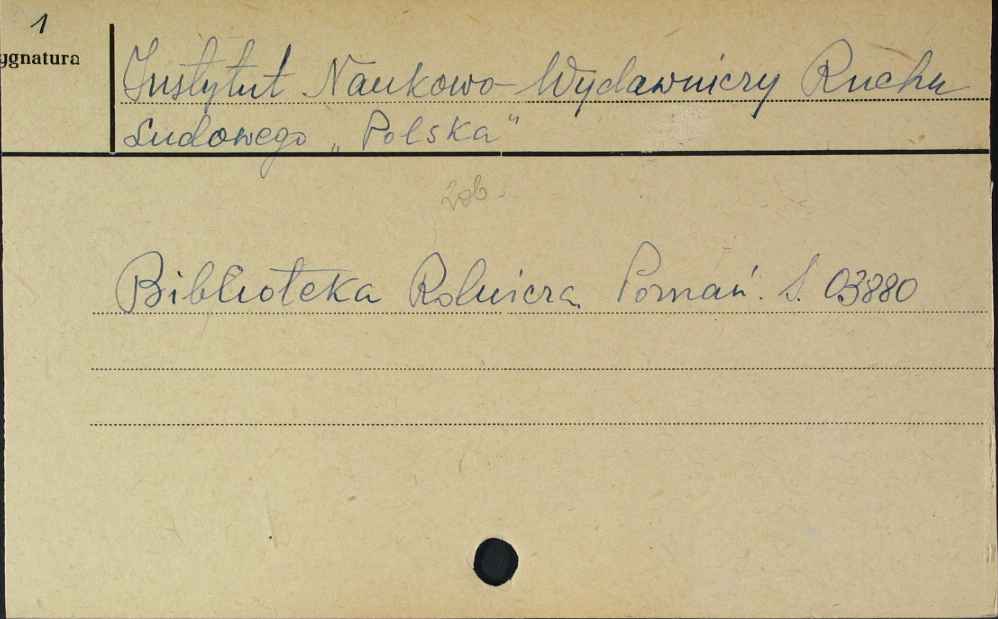 1
ygnatura
Instytut Naukowo-Wydawniczy Ruchu
Ludowego „Polska"
zob.
Biblioteka Rolnicza Poznań. S. 03880